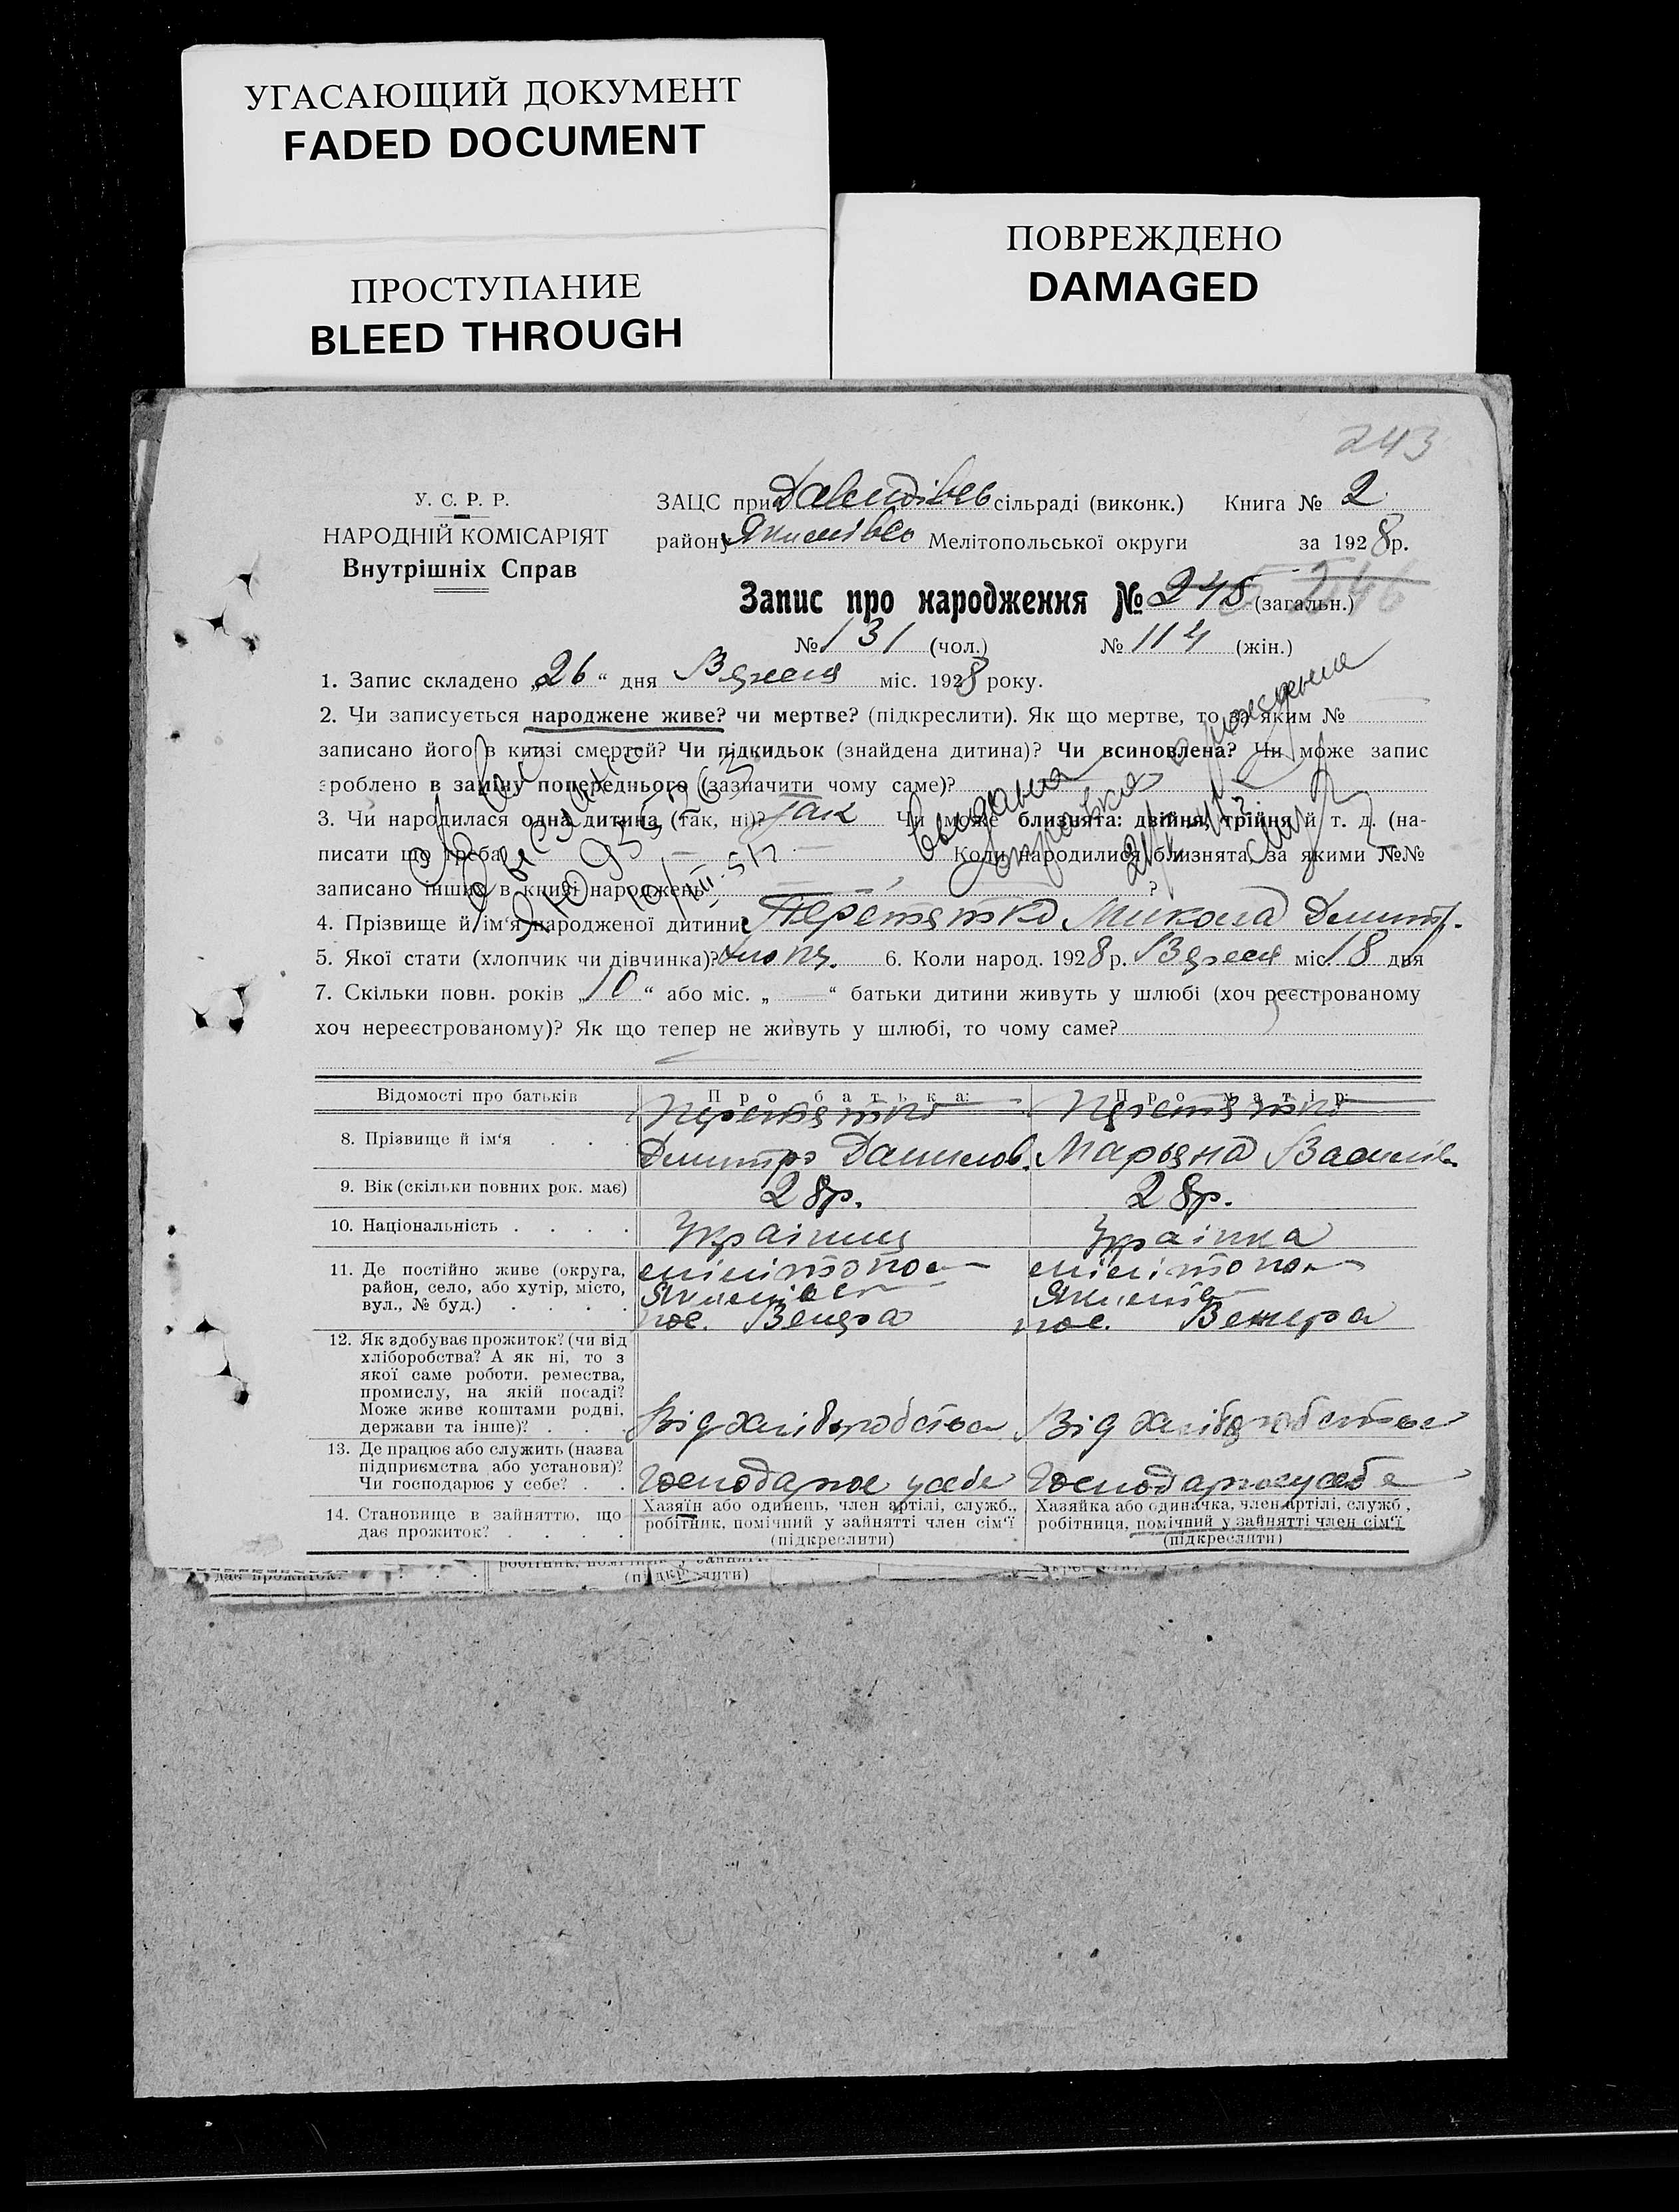 УГАСАЮЩИЙ ДОКУМЕНТ
FADED DOCUMENT
ПРОСТУПАНИЕ
BLEED THROUGH
ПОВРЕЖДЕНО
DAMAGED
243
У. С. Р. Р.
НАРОДНІЙ КОМІСАРІЯТ
Внутрішніх Справ
ЗАЦС при Давидівсь сільраді (виконк.) Книга № 2
району Якимівсь Мелітопольської округи за 1928 р.
Запис про народження № 245 (загальн.) 246
№ 131 (чол.) № 114 (жін.)
1. Запис складено „26“ дня Вересня міс. 1928 року.
2. Чи записується народжене живе? чи мертве? (підкреслити). Як що мертве, то за яким №
записано його в книзі смертей? Чи підкидьок (знайдена дитина)? Чи всиновлена? Чи може запис
зроблено в заміну попереднього (зазначити чому саме)?
3. Чи народилася одна дитина (так, ні)? Так Чи може близнята: двійня, трійня й т. д. (на-
писати що треба) Коли народилися близнята, за якими №№
записано інших в книзі народжень ?
4. Прізвище й ім‘я народженої дитини Перетятко Микола Дмитр.
5. Якої стати (хлопчик чи дівчинка)? Хлопч. 6. Коли народ. 1928 р. Вересня міс. 18 дня
7. Скільки повн. років „10“ або міс. „—“ батьки дитини живуть у шлюбі (хоч реєстрованому
хоч нереєстрованому)? Як що тепер не живуть у шлюбі, то чому саме?
Відомості про батьків Про батька: Про матір:
Перетятко Перетятко
8. Прізвище й ім‘я Дмитро Данилов. Марьяна Василів.
9. Вік (скільки повних рок. має) 28р. 28р.
10. Національність Украінец Украінка
11. Де постійно живе (округа, мілітопол мілітопол
район, село, або хутір, місто, Якимівсь Якимів
вул., № буд.) пос. Венера пос. Венера
12. Як здобуває прожиток? (чи від
хліборобства? А як ні, то з
якої саме роботи, ремества,
промислу, на якій посаді?
Може живе коштами родні,
держави та інше)? Від хліборобства Від хліборобства
13. Де працює або служить (назва
підприємства або установи)?
Чи господарює у себе? Господарює у себе Господарює у себе
14. Становище в зайняттю, що
дає прожиток?
Хазяїн або одинець, член артілі, служб.,
робітник, помічний у зайнятті член сім‘ї
(підкреслити)
Хазяйка або одиначка, член артілі, служб,
робітниця, помічний у зайнятті член сім‘ї
(підкреслити)
дає прожиток?
(підкреслити)
выдана
справка о рождении